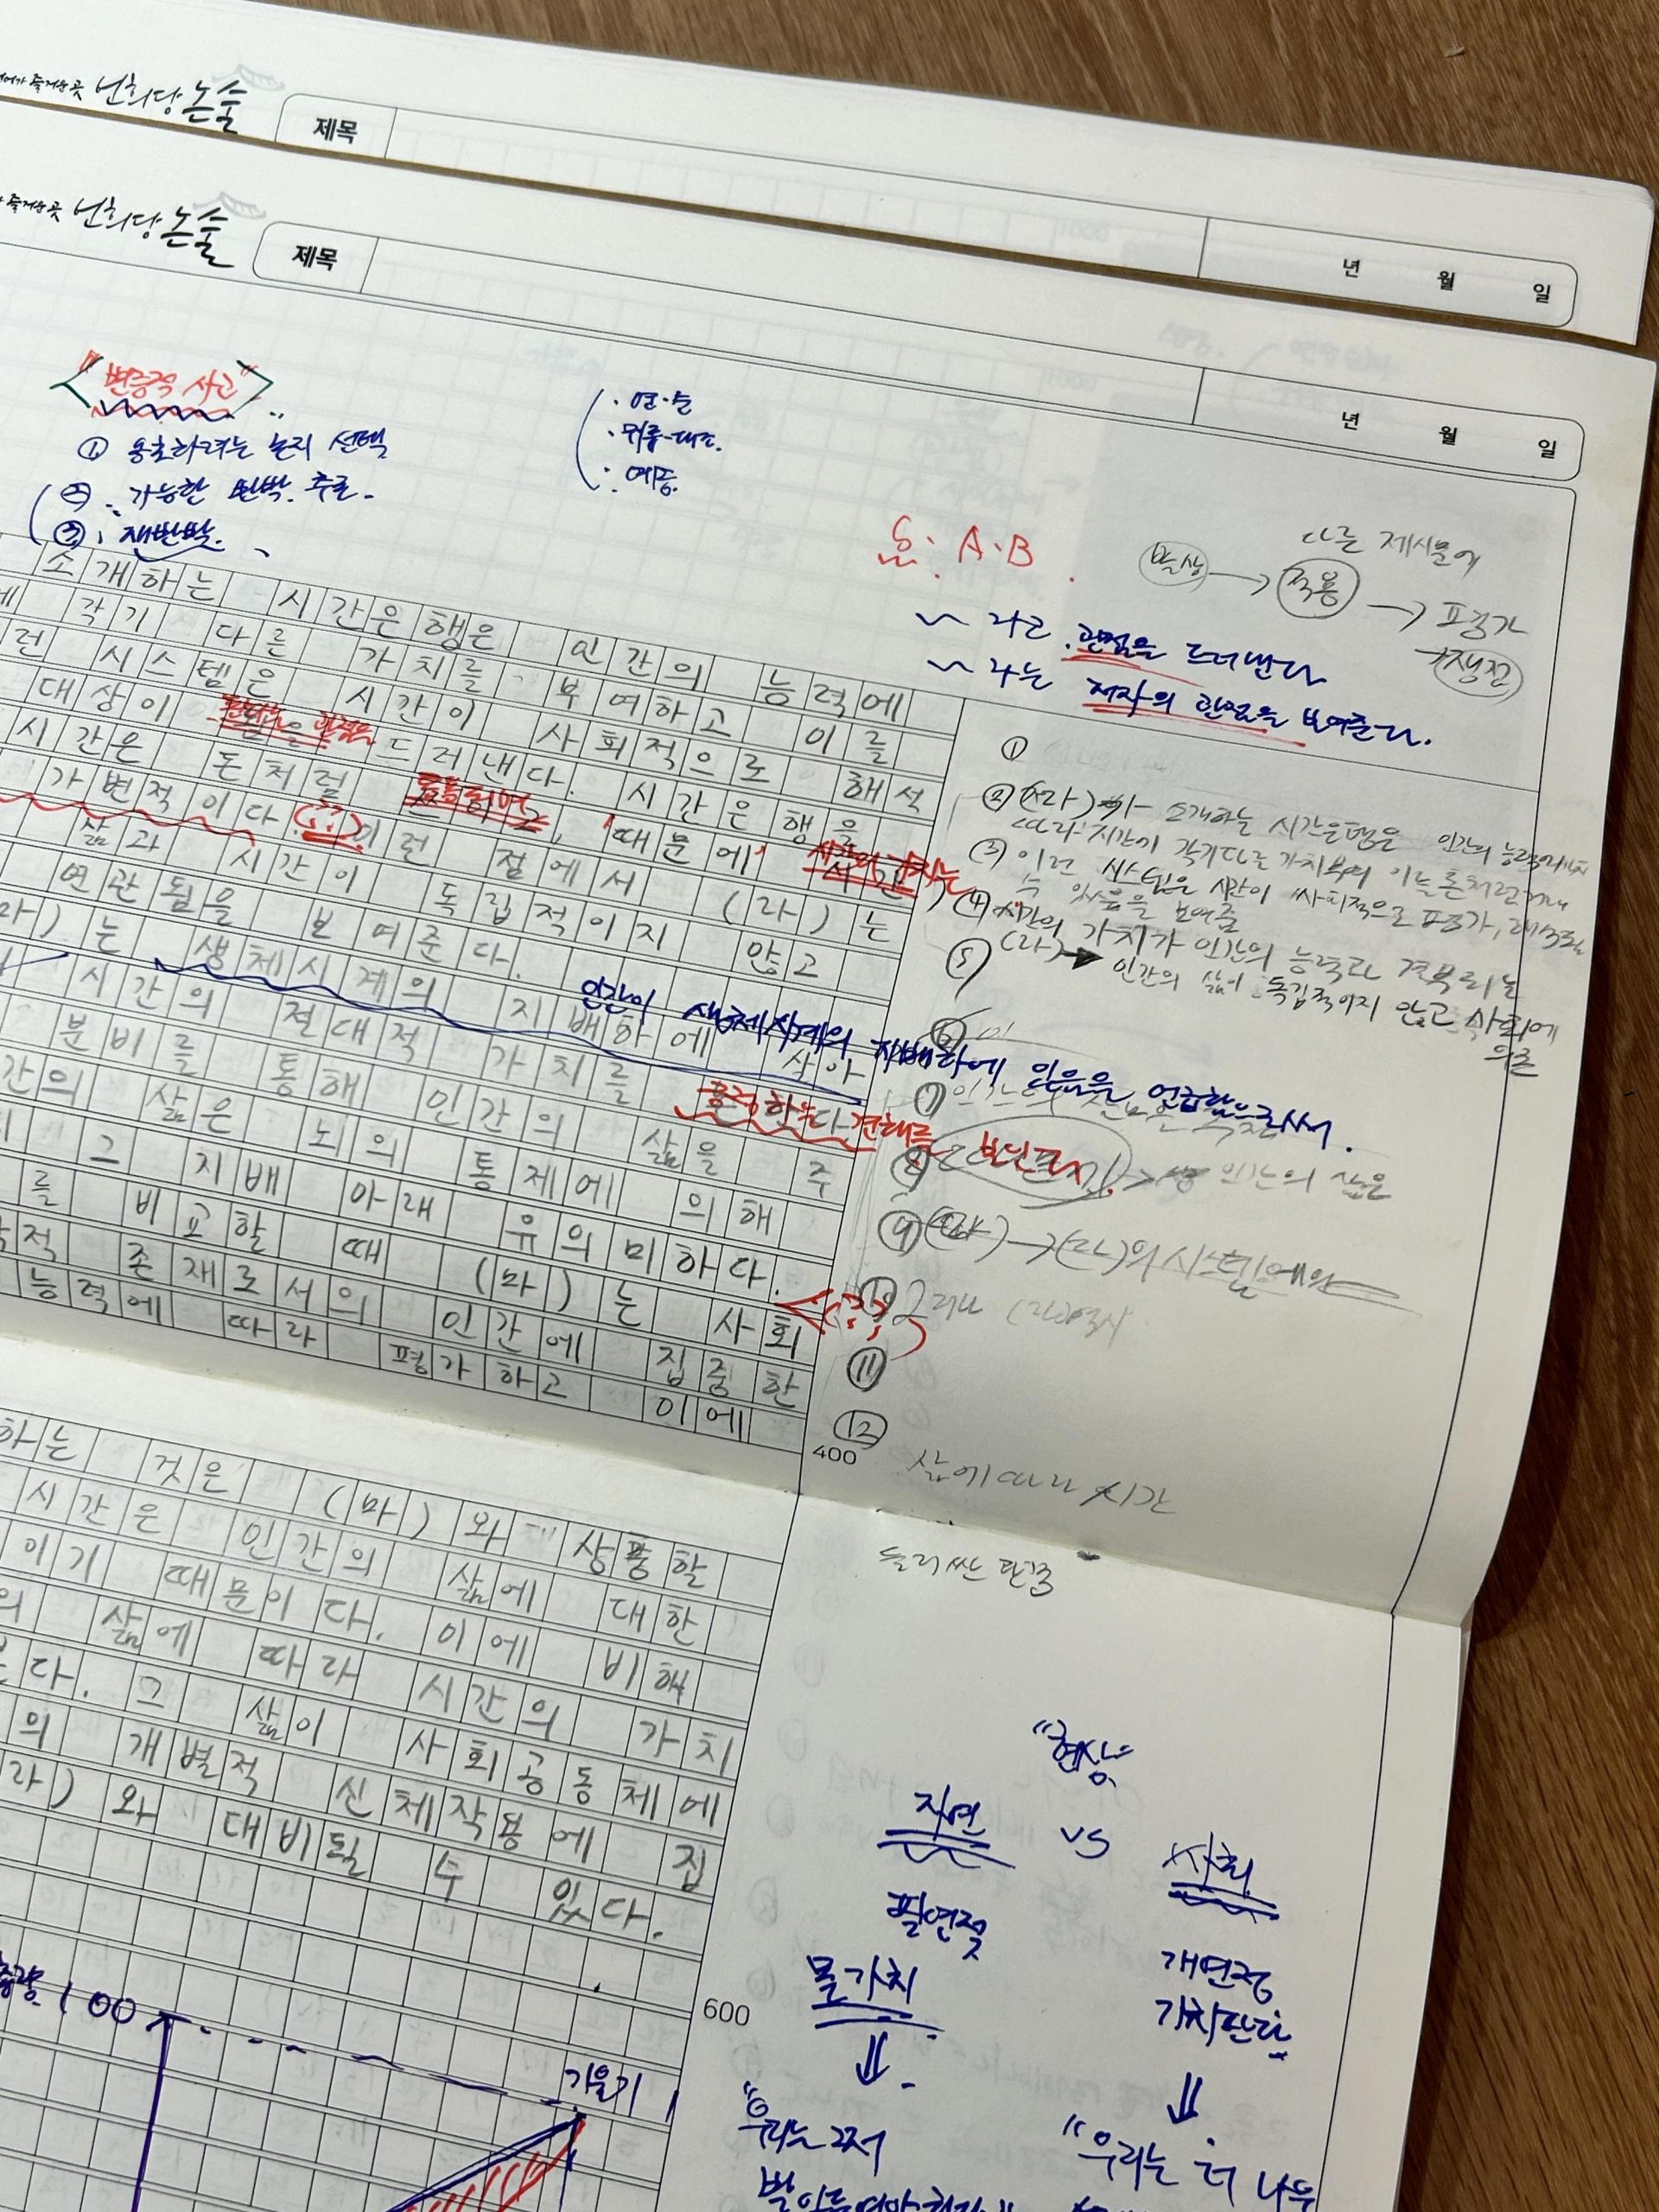 즐거운 곳 번희당 논술
제목
년 월 일
즐거운 곳 번희당 논술
제목
년 월 일
"변증적 사고"
① 옹호하려는 논지 선택
② 가능한 반박 추론
③ 재반박
· 연·순
· 예증
A·B
발상 → 적용 → 평가
다른 제시문에
→ 쟁점
라고 관점을 드러낸다
라는 저자의 관점을 보여준다.
소개하는 시간은행은 인간의 능력에
각기 다른 가치를 부여하고 이를
런 시스템은 시간이 사회적으로 해석
대상이 드러낸다. 시간은행을
시간은 돈처럼 때문에
가변적이다 이런 점에서 (라)는
삶과 시간이 독립적이지 않고
연관됨을 보여준다.
마)는 생체시계의 지배하에 살아
시간의 절대적 가치를
분비를 통해 인간의 삶을 주
간의 삶은 뇌의 통제에 의해
그 지배 아래 유의미하다.
를 비교할 때 (마)는 사회
적 존재로서의 인간에 집중한
능력에 따라 평가하고 이에
400
관점을
시간의 가치는
인간이 생체시계의 지배하에 있음을 언급함으로써.
견해를 보인다
①
② (라)가 소개하는 시간은행은 인간의 능력에
따라 시간에 각기 다른 가치부여
③ 이런 시스템은 시간이 사회적으로 평가, 해석될
수 있음을 보여줌
④ 시간의 가치가 인간의 능력과 결부되는
⑤ (라) → 인간의 삶이 독립적이지 않고 사회에
의존
⑥
⑦
⑧ 인간의 삶은
⑨ (마) → (라)의 시스템에
⑩ 그러나 (라)
⑪
⑫
삶에 따라 시간
둘러싼 관점
하는 것은 (마)와 상통할
시간은 인간의 삶에 대한
이기 때문이다. 이에 비해
의 삶에 따라 시간의 가치
다. 그 삶이 사회공동체에
의 개별적 신체작용에 집
라)와 대비될 수 있다.
600
"현상"
자연 vs 사회
필연적 개연적
몰가치 가치판단
⇓ ⇓
"우리는 그저
"우리는 더 나은
100
기울기 1